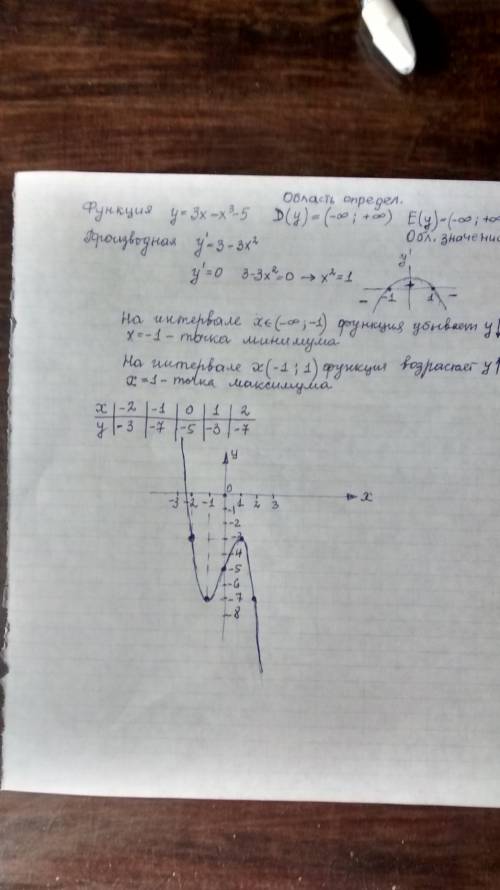 Область определ.
Функция y=3x-x³-5 D(y)=(-∞; +∞) E(y)=(-∞; +∞
Производная y'=3-3x² Обл. значени
y'=0 3-3x²=0 → x²=1
y'
+
- -1 1 -
На интервале x∈(-∞;-1) функция убывает y↓
x=-1 - точка минимума
На интервале x(-1; 1) функция возрастает y↑
x=1 - точка максимума
x -2 -1 0 1 2
y -3 -7 -5 -3 -7
y
0
-3 -2 -1 1 2 3 x
-1
-2
-3
-4
-5
-6
-7
-8